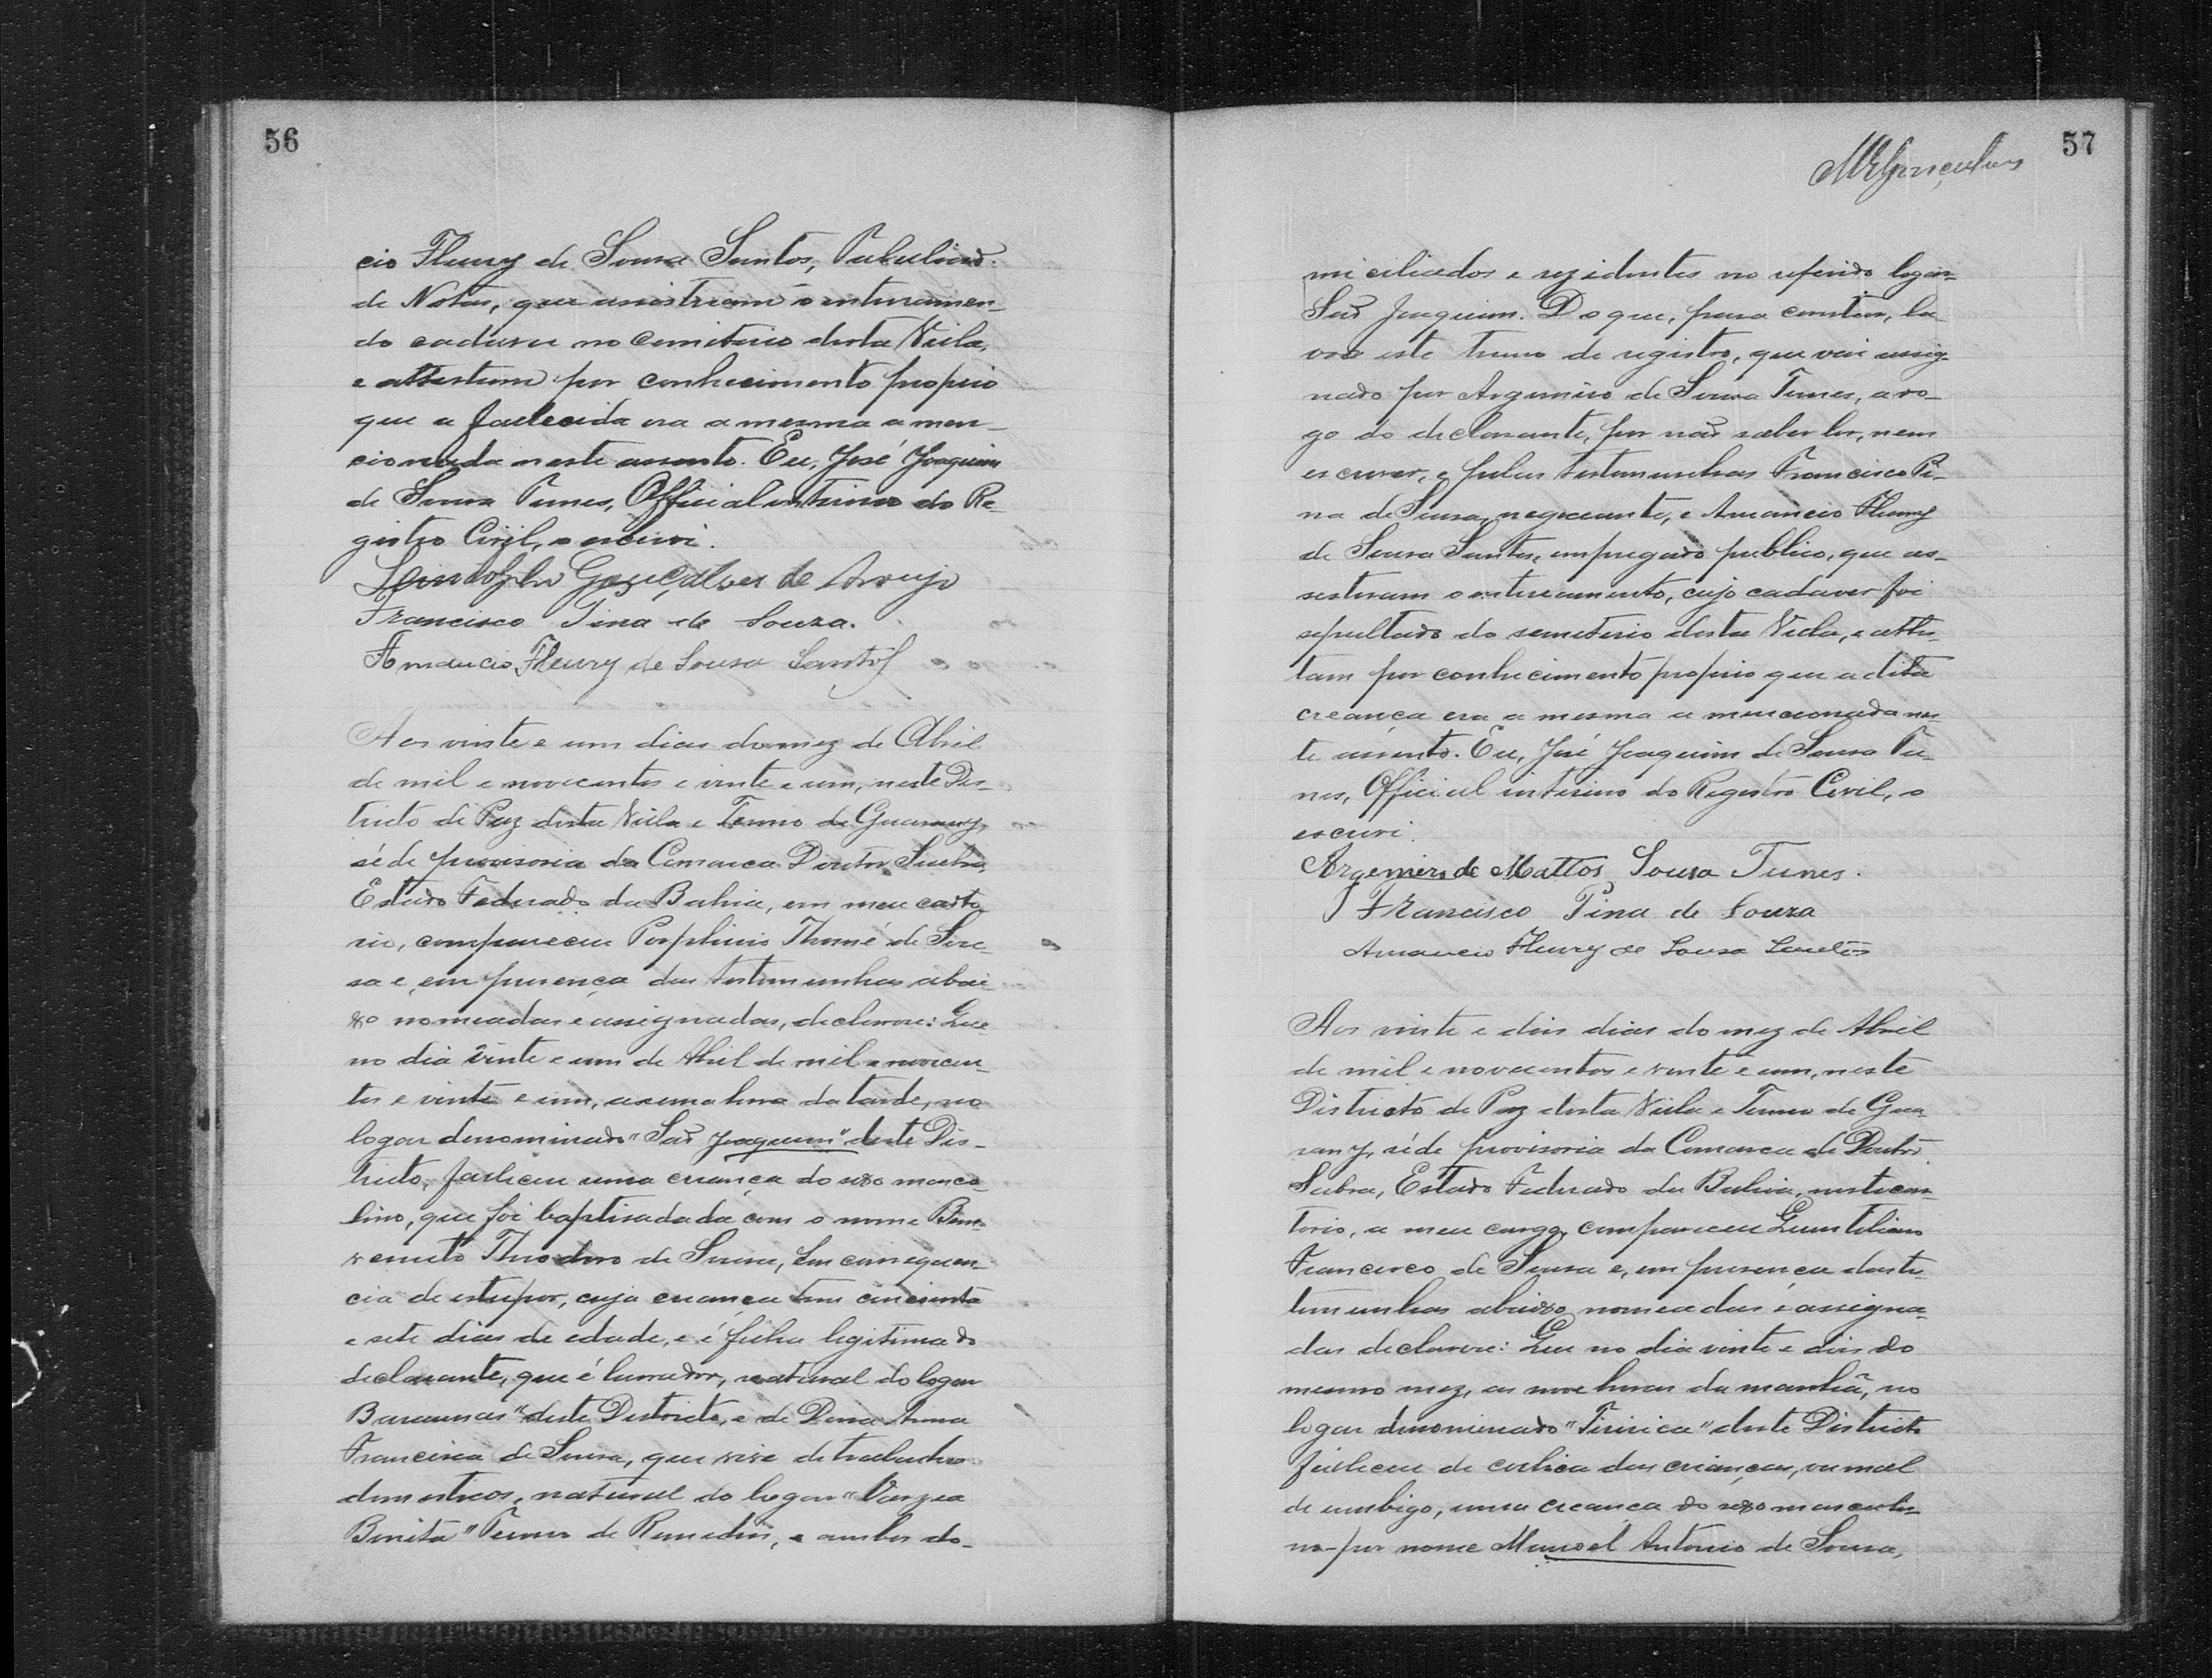 56
cio Fleury de Sousa Santos, Tabelião
de Notas, que assistiram o enterramen-
do cadaver no cemiterio desta Villa,
e attestam por conhecimento proprio
que a fallecida era a mesma a men-
cionada neste assento. Eu, José Joaquim
de Sousa Tunes, Official interino do Re-
gistro Civil, o escrivi.
Lindolpho Gonçalves de Araujo
Francisco Pina de Souza.
Amancio Fleury de Sousa Santos
Aos vinte e um dias do mez de Abril
de mil e novecentos e vinte e um, neste Dis-
tricto de Paz desta Villa e Termo de Guarany,
séde provisoria da Comarca Doutor Seabra,
Estado Federado da Bahia, em meu carto
rio, compareceu Porphirio Thomé de Sou-
sa e, em presença das testemunhas abai-
xo nomeadas e assignadas, declarou: Que
no dia vinte e um de Abril de mil e novecen-
tos e vinte e um, a uma hora da tarde, no
logar denominado "São Joaquim" deste Dis-
tricto, falleceu uma criança do sexo mascu-
lino, que foi baptisada da com o nome Bem-
venuto Theodoro de Sousa, em consequen-
cia de estupor, cuja creança tem cincoenta
e sete dias de edade, e é filha legitima do
declarante, que é lavrador, natural do logar
Baraunas" deste Districto, e de Dona Anna
Francisca de Sousa, que vive de trabalhos
domesticos, natural do logar "Varzea
Bonita" Termo de Remedios, e ambos do-
57
MRGonçalves
miciliados e rezidentes no referido logar
São Joaquim. Do que, para constar, la-
vro este termo de registro, que vai assig-
nado por Argemiro de Sousa Tunes, a ro-
go do declarante, por não saber ler, nem
escrever, e pelas testemunhas Francisco Pi-
na de Sousa, negociante, e Amancio Fleury
de Sousa Santos, empregado publico, que as-
sestiram o enterramento, cujo cadaver foi
sepultado do semeterio desta Villa, e attes-
tam por conhecimento proprio que a dita
creança era a mesma a mencionada nes-
te assento. Eu, José Joaquim de Sousa Tu-
nes, Official interino do Registro Civil, o
escrivi.
Argemiro de Mattos Sousa Tunes.
Francisco Pina de Souza
Amancio Fleury de Sousa Santos
Aos vinte e dois dias do mez de Abril
de mil e novecentos e vinte e um, neste
Districto de Paz desta Villa e Termo de Gua
rany, séde provisoria da Comarca de Doutor
Seabra, Estado Federado da Bahia, neste car-
torio, a meu cargo, compareceu Quintiliano
Francisco de Sousa e, em presença das tes-
temunhas abaixo nomeadas e assigna-
das declarou: Que no dia vinte e dois do
mesmo mez, as nove horas da manhã, no
logar denominado "Tiririca" deste Districto
falleceu de colica das crianças, ou mal
de umbigo, uma creança do sexo masculi-
no-por nome Manoel Antonio de Sousa,